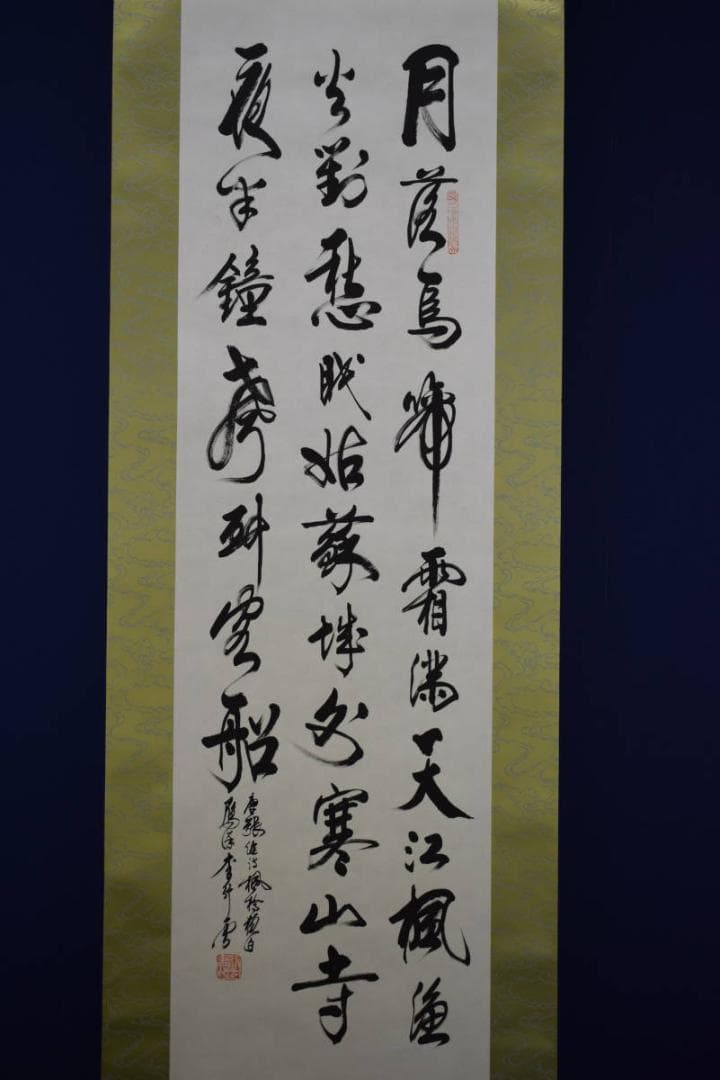 月落烏啼霜滿天江楓漁
火對愁眠姑蘇城外寒山寺
夜半鐘聲到客船
唐張継詩楓橋夜泊
李